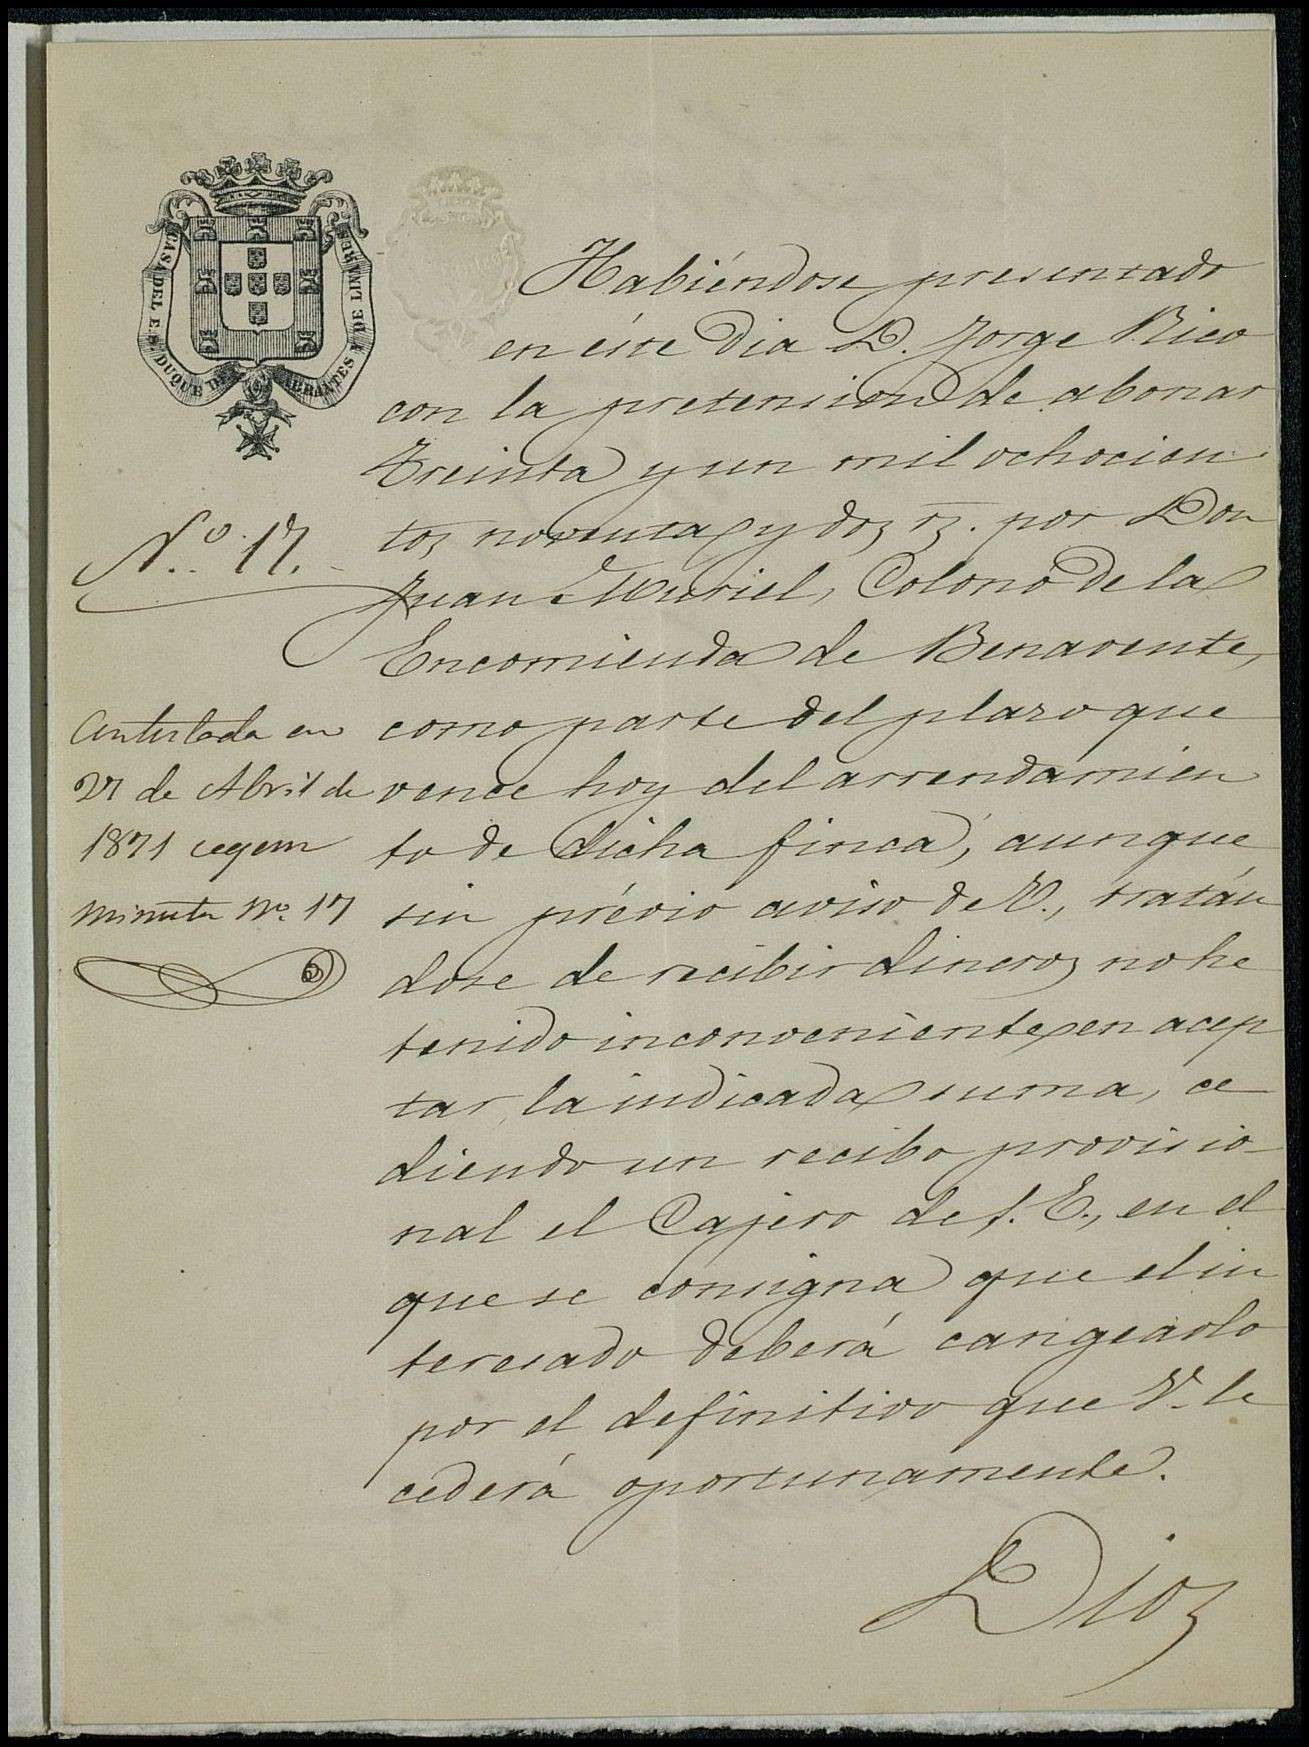 CASA DEL E.S. DUQUE DE ABRANTES Y DE LINARES
Habiéndose presentado
en éste dia D. Jorge Rico
con la pretension de abonar
treinta y un mil ochocien
tos noventa y dos rs. por Don
Nº. 17.
Juan Muriel, Colono de la
Encomienda de Benavente,
como parte del plazo que
vence hoy del arrendamien
to de dicha finca, aunque
sin prévio aviso de V., tratán
dose de recibir dinero, no he
tenido inconveniente en acep
tar la indicada suma, ce
diendo un recibo provisio-
nal el Cajero de S. E., en el
que se consigna que el in
teresado deberá cangearlo
por el definitivo que V. le
cederá oportunamente.
Dios
Contestada en
27 de Abril de
1871 segun
minuta Nº. 17